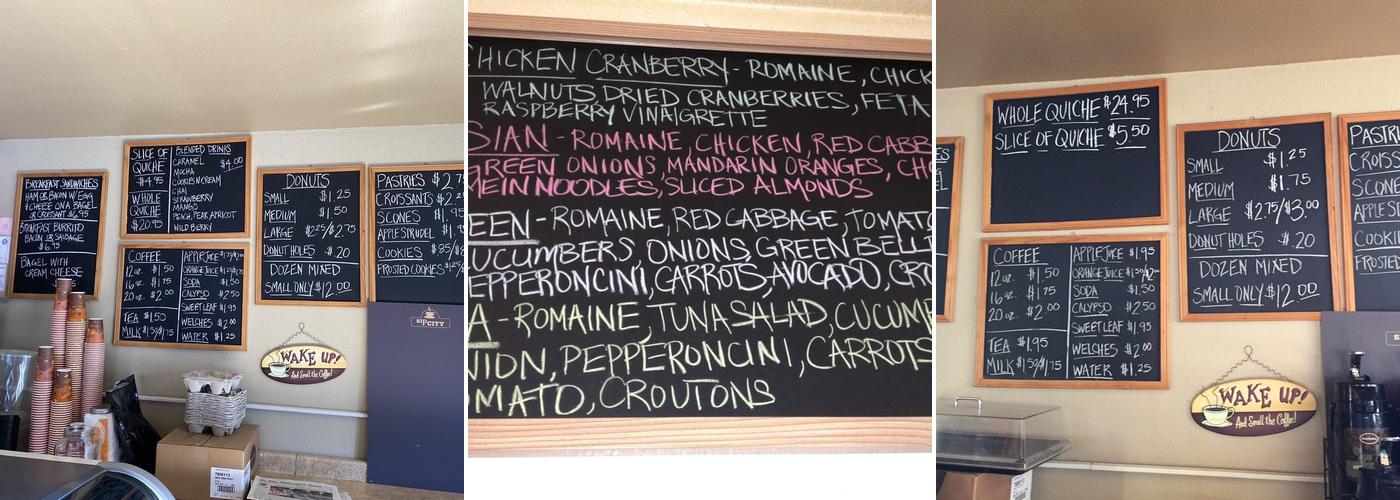 BREAKFAST SANDWICHES
HAM OR BACON W/ EGG
& CHEESE ON A BAGEL
OR CROISSANT $6.95
BREAKFAST BURRITO
BACON OR SAUSAGE
$6.95
BAGEL WITH
CREAM CHEESE
SLICE OF
QUICHE
$4.95
WHOLE
QUICHE
$20.95
BLENDED DRINKS
CARAMEL $4.00
MOCHA
COOKIES N CREAM
CHAI
STRAWBERRY
MANGO
PEACH, PEAR, APRICOT
WILD BERRY
COFFEE
12 oz. $1.50
16 oz. $1.75
20 oz. $2.00
TEA $1.50
MILK $1.50/$1.75
APPLE JUICE
ORANGE JUICE
SODA $1.50
CALYPSO $2.50
SWEET LEAF $1.95
WELCHES $2.00
WATER $1.25
DONUTS
SMALL $1.25
MEDIUM $1.50
LARGE $2.25/$2.75
DONUT HOLES $.20
DOZEN MIXED
SMALL ONLY $12.00
PASTRIES $2.7
CROISSANTS $2.
SCONES $1.95
APPLE STRUDEL $1.
COOKIES .85/
FROSTED COOKIES
SIP CITY
WAKE UP!
And Smell the Coffee!
CHICKEN CRANBERRY - ROMAINE, CHICK
WALNUTS, DRIED CRANBERRIES, FETA
RASPBERRY VINAIGRETTE
SIAN - ROMAINE, CHICKEN, RED CABB
GREEN ONIONS, MANDARIN ORANGES, CHO
MEIN NOODLES, SLICED ALMONDS
EEN - ROMAINE, RED CABBAGE, TOMATO
UCUMBERS, ONIONS, GREEN BELL
PEPPERONCINI, CARROTS, AVOCADO, CRO
A - ROMAINE, TUNA SALAD, CUCUM
NION, PEPPERONCINI, CARROTS
OMATO, CROUTONS
WHOLE QUICHE $24.95
SLICE OF QUICHE $5.50
COFFEE
12 oz. $1.50
16 oz. $1.75
20 oz. $2.00
TEA $1.95
MILK $1.50/$1.75
APPLE JUICE $1.95
ORANGE JUICE
SODA $1.50
CALYPSO $2.50
SWEET LEAF $1.95
WELCHES $2.00
WATER $1.25
DONUTS
SMALL $1.25
MEDIUM $1.75
LARGE $2.75/$3.00
DONUT HOLES $.20
DOZEN MIXED
SMALL ONLY $12.00
PASTRI
CROISS
SCONE
APPLE
COOKIE
FROSTED
WAKE UP!
And Smell the Coffee!